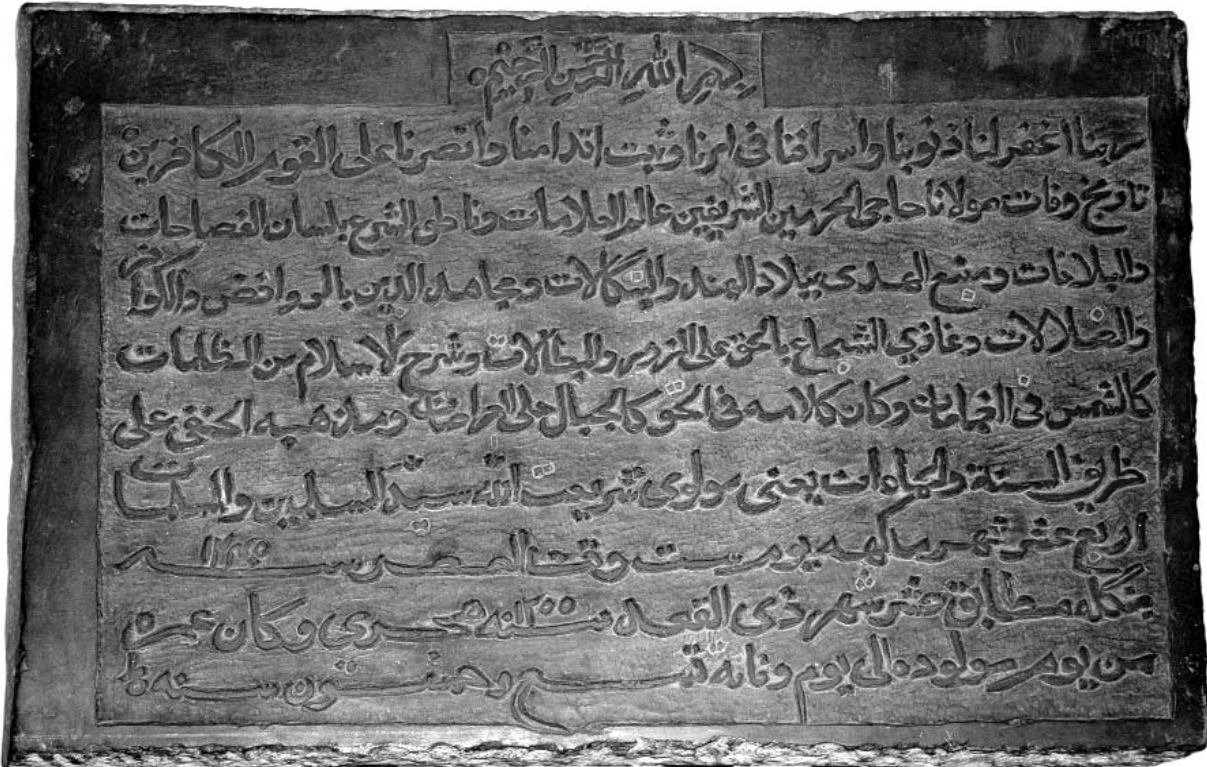 بسم الله الرحمن الرحيم
ربنا اغفر لنا ذنوبنا واسرافنا في امرنا وثبت اقدامنا وانصرنا على القوم الكافرين
تاريخ وفات مولانا حاجي الحرمين الشريفين عالم العلامات وناطق الشرع بلسان الفصاحات
والبلاغات ومنبع الهدى ببلاد الهند والبنكالات ومجاهد الدين بالروافض والكوافر
والضلالات وغازي الشجاع بالحق على الزور والبطالات وشرح لاسلام من الظلمات
كالشمس في الغمامات وكان كلامه في الحق كالجبال على ومذهبه الحنفي على
طريق السنة والجماعات يعنى مولوى شريعت الله سيد المسلمين والمسلمات
اربع عشر شهر ماكهه يوم ست وقت العصر سنه ١٢٤٦
بنگله مطابق عشر شهر ذى القعده سنه ١٢٥٥ هجري وكان عمره
من يوم مولوده الى يوم وفاته تسع وخمسون سنه